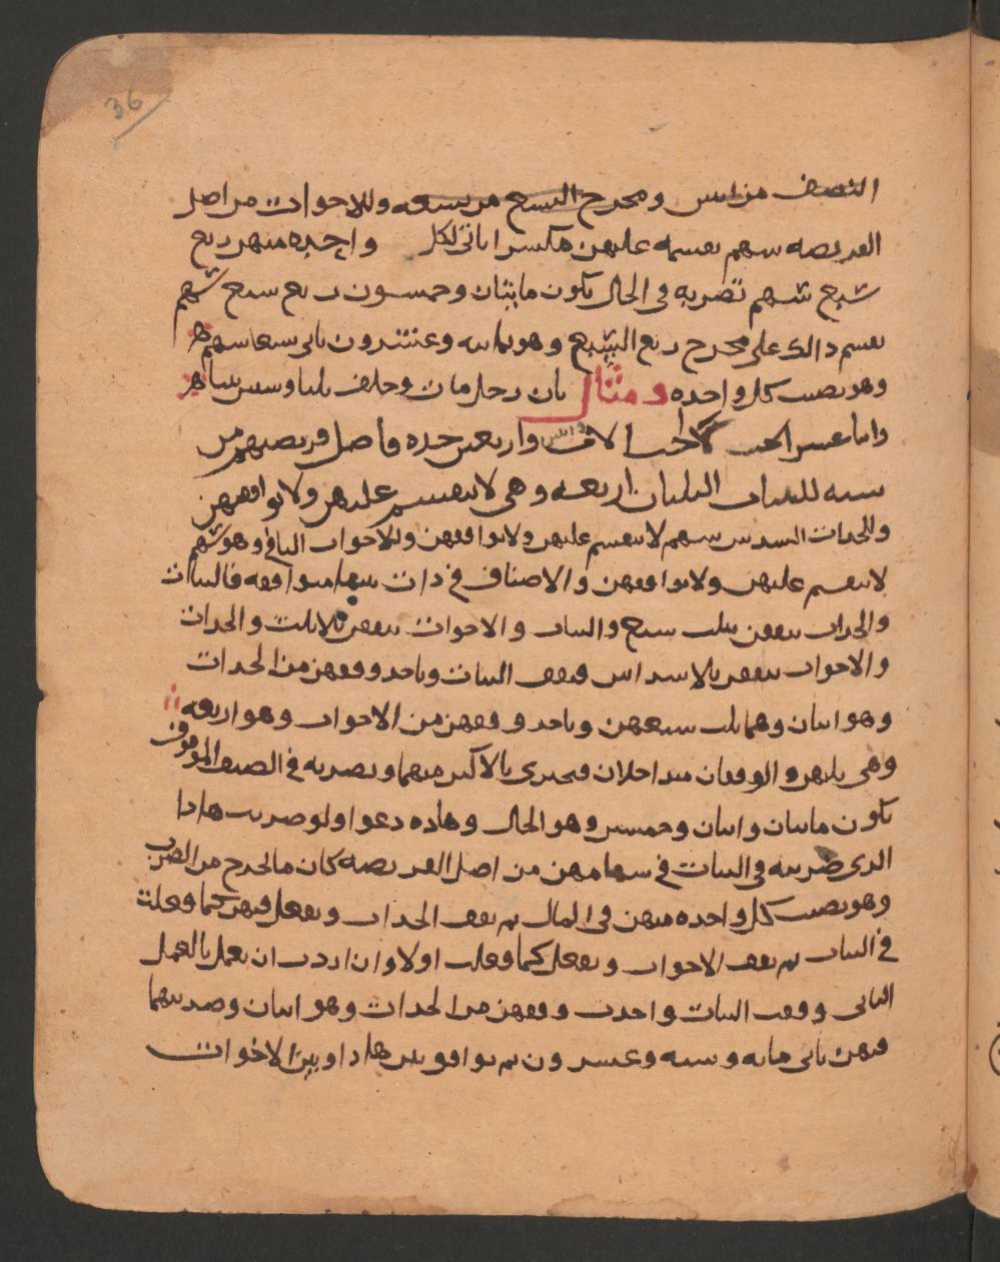 36
النصف من اثنين ومخرج التسع من تسعه وللاخوات من اصل
الفريضه سهم تقسمه عليهن منكسرا ياتي لكل واحده منهن ربع
سبع سهم تضربه في الحال يكون مايتان وخمسون ربع سبع سهم
تقسم ذالك على مخرج ربع السبع وهو ثمانيه وعشرون ياتي تسعا سهم
وهو نصيب كل واحده ومثال ثان رجل مات وخلف
واثنا عشر اخت لاب واربعين جده فاصل فريضتهم من
سته للبنات الثلثان اربعه وهي لا تنقسم عليهن ولا توافقهن
وللجدات السدس سهم لا ينقسم عليهن ولا يوافقهن وللاخوات الباقي وهو سهم
لا ينقسم عليهن ولا يوافقهن والاصناف في ذات بينها متوافقه فالبنات
والجدات يتفقن بثلث سبع والبنات والاخوات يتفقن بالاثلاث والجدات
والاخوات يتفقن بالاسداس فتقف البنات وتاخذ وفقهن من الجدات
وهو اثنان وهما ثلث سبعهن وتاخذ وفقهن من الاخوات وهو اربعه
وهي ثلثهن والوفقان متداخلان فتجتزي بالاكثر منهما وتضربه في الصنف الموقوف
يكون مايتان واثنان وخمسين وهو الحال وهاذه دعوا اولو ضربت هاذا
الذي ضربته في البنات في سهامهن من اصل الفريضه كان ما خرج من الضرب
وهو نصيب كل واحده منهن في المال ثم تقف الجدات وتفعل فيهن كما فعلت
في البنات ثم تقف الاخوات وتفعل كما فعلت اولا وان اردت ان تعمل بالعمل
الثاني وقفت البنات واخذت وفقهن من الجدات وهو اثنان وضربتهما
فيهن ياتي مايه وسته وعشرون ثم توافق بين هاذا وبين الاخوات